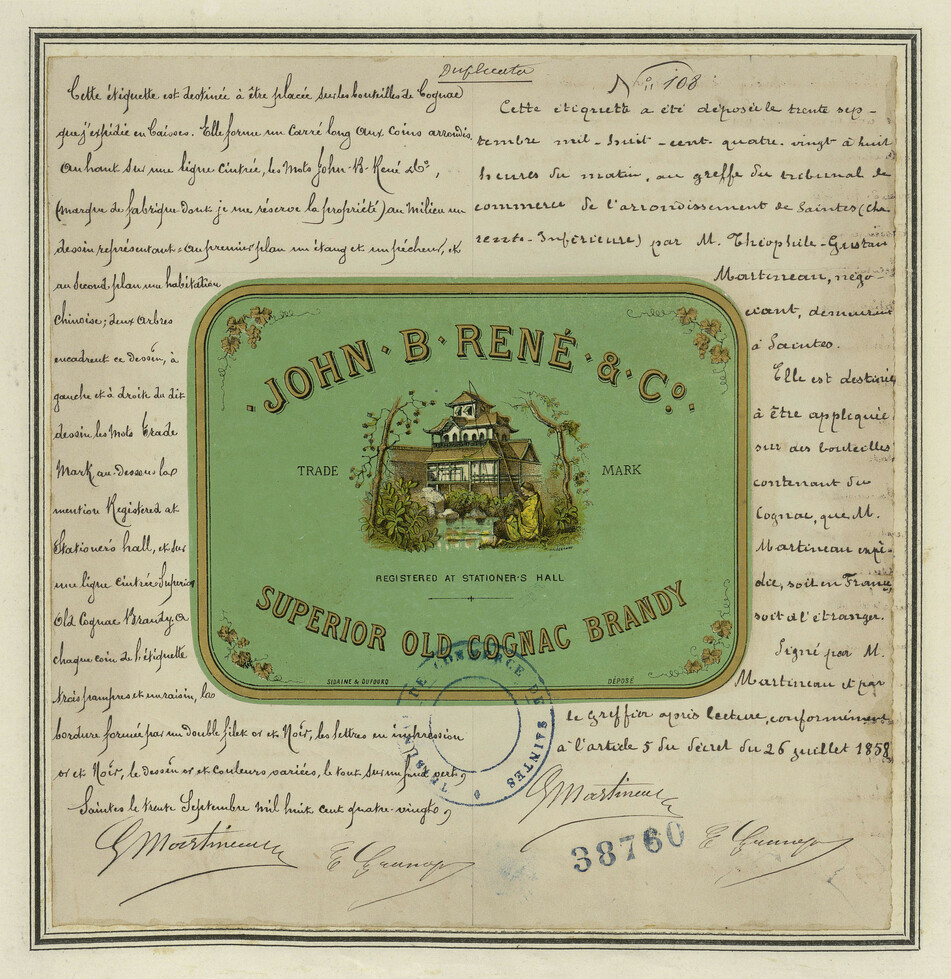 Duplicata
Cette étiquette est destinée à être placée sur les bouteilles de Cognac
que j'expédie en Caisses. Elle forme un carré long aux coins arrondis.
Au haut sur une ligne cintrée, les Mots John-B-René & Co,
(marque de fabrique dont je me réserve la propriété) au milieu un
dessin représentant = au premier plan un étang et un pêcheur, et
au second plan une habitation
chinoise; deux arbres
encadrent ce dessin, à
gauche et à droite du dit
dessin, les Mots Trade
Mark au-dessous la
mention Registered at
Stationer's hall, et sur
une ligne cintrée Superior
Old Cognac Brandy. A
chaque coin de l'étiquette
trois pampres et un raisin, la
bordure formée par un double filet or et Noir, les lettres en impression
or et Noir, le dessin or et couleurs variées, le tout sur un fond vert,
Saintes le trente Septembre mil huit cent quatre-vingt,
G Martineau
No 108
Cette étiquette a été déposée le trente sep-
tembre mil-huit-cent-quatre-vingt à huit
heures du matin, au greffe du tribunal de
commerce de l'arrondissement de Saintes (Cha-
rente-Inférieure) par M. Théophile-Gustave
Martineau, négo-
ciant, demeurant
à Saintes.
Elle est destinée
à être appliquée
sur des bouteilles
contenant du
Cognac, que M.
Martineau expé-
die, soit en France,
soit à l'étranger.
Signé par M.
Martineau et par
le Greffier après lecture, conformément
à l'article 5 du décret du 26 juillet 1858
G Martineau
38760
JOHN·B·RENÉ·&·Co.
TRADE MARK
REGISTERED AT STATIONER'S HALL
SUPERIOR OLD COGNAC BRANDY
SIDAINE & DUFOURQ
DÉPOSÉ
TRIBUNAL DE COMMERCE DE SAINTES